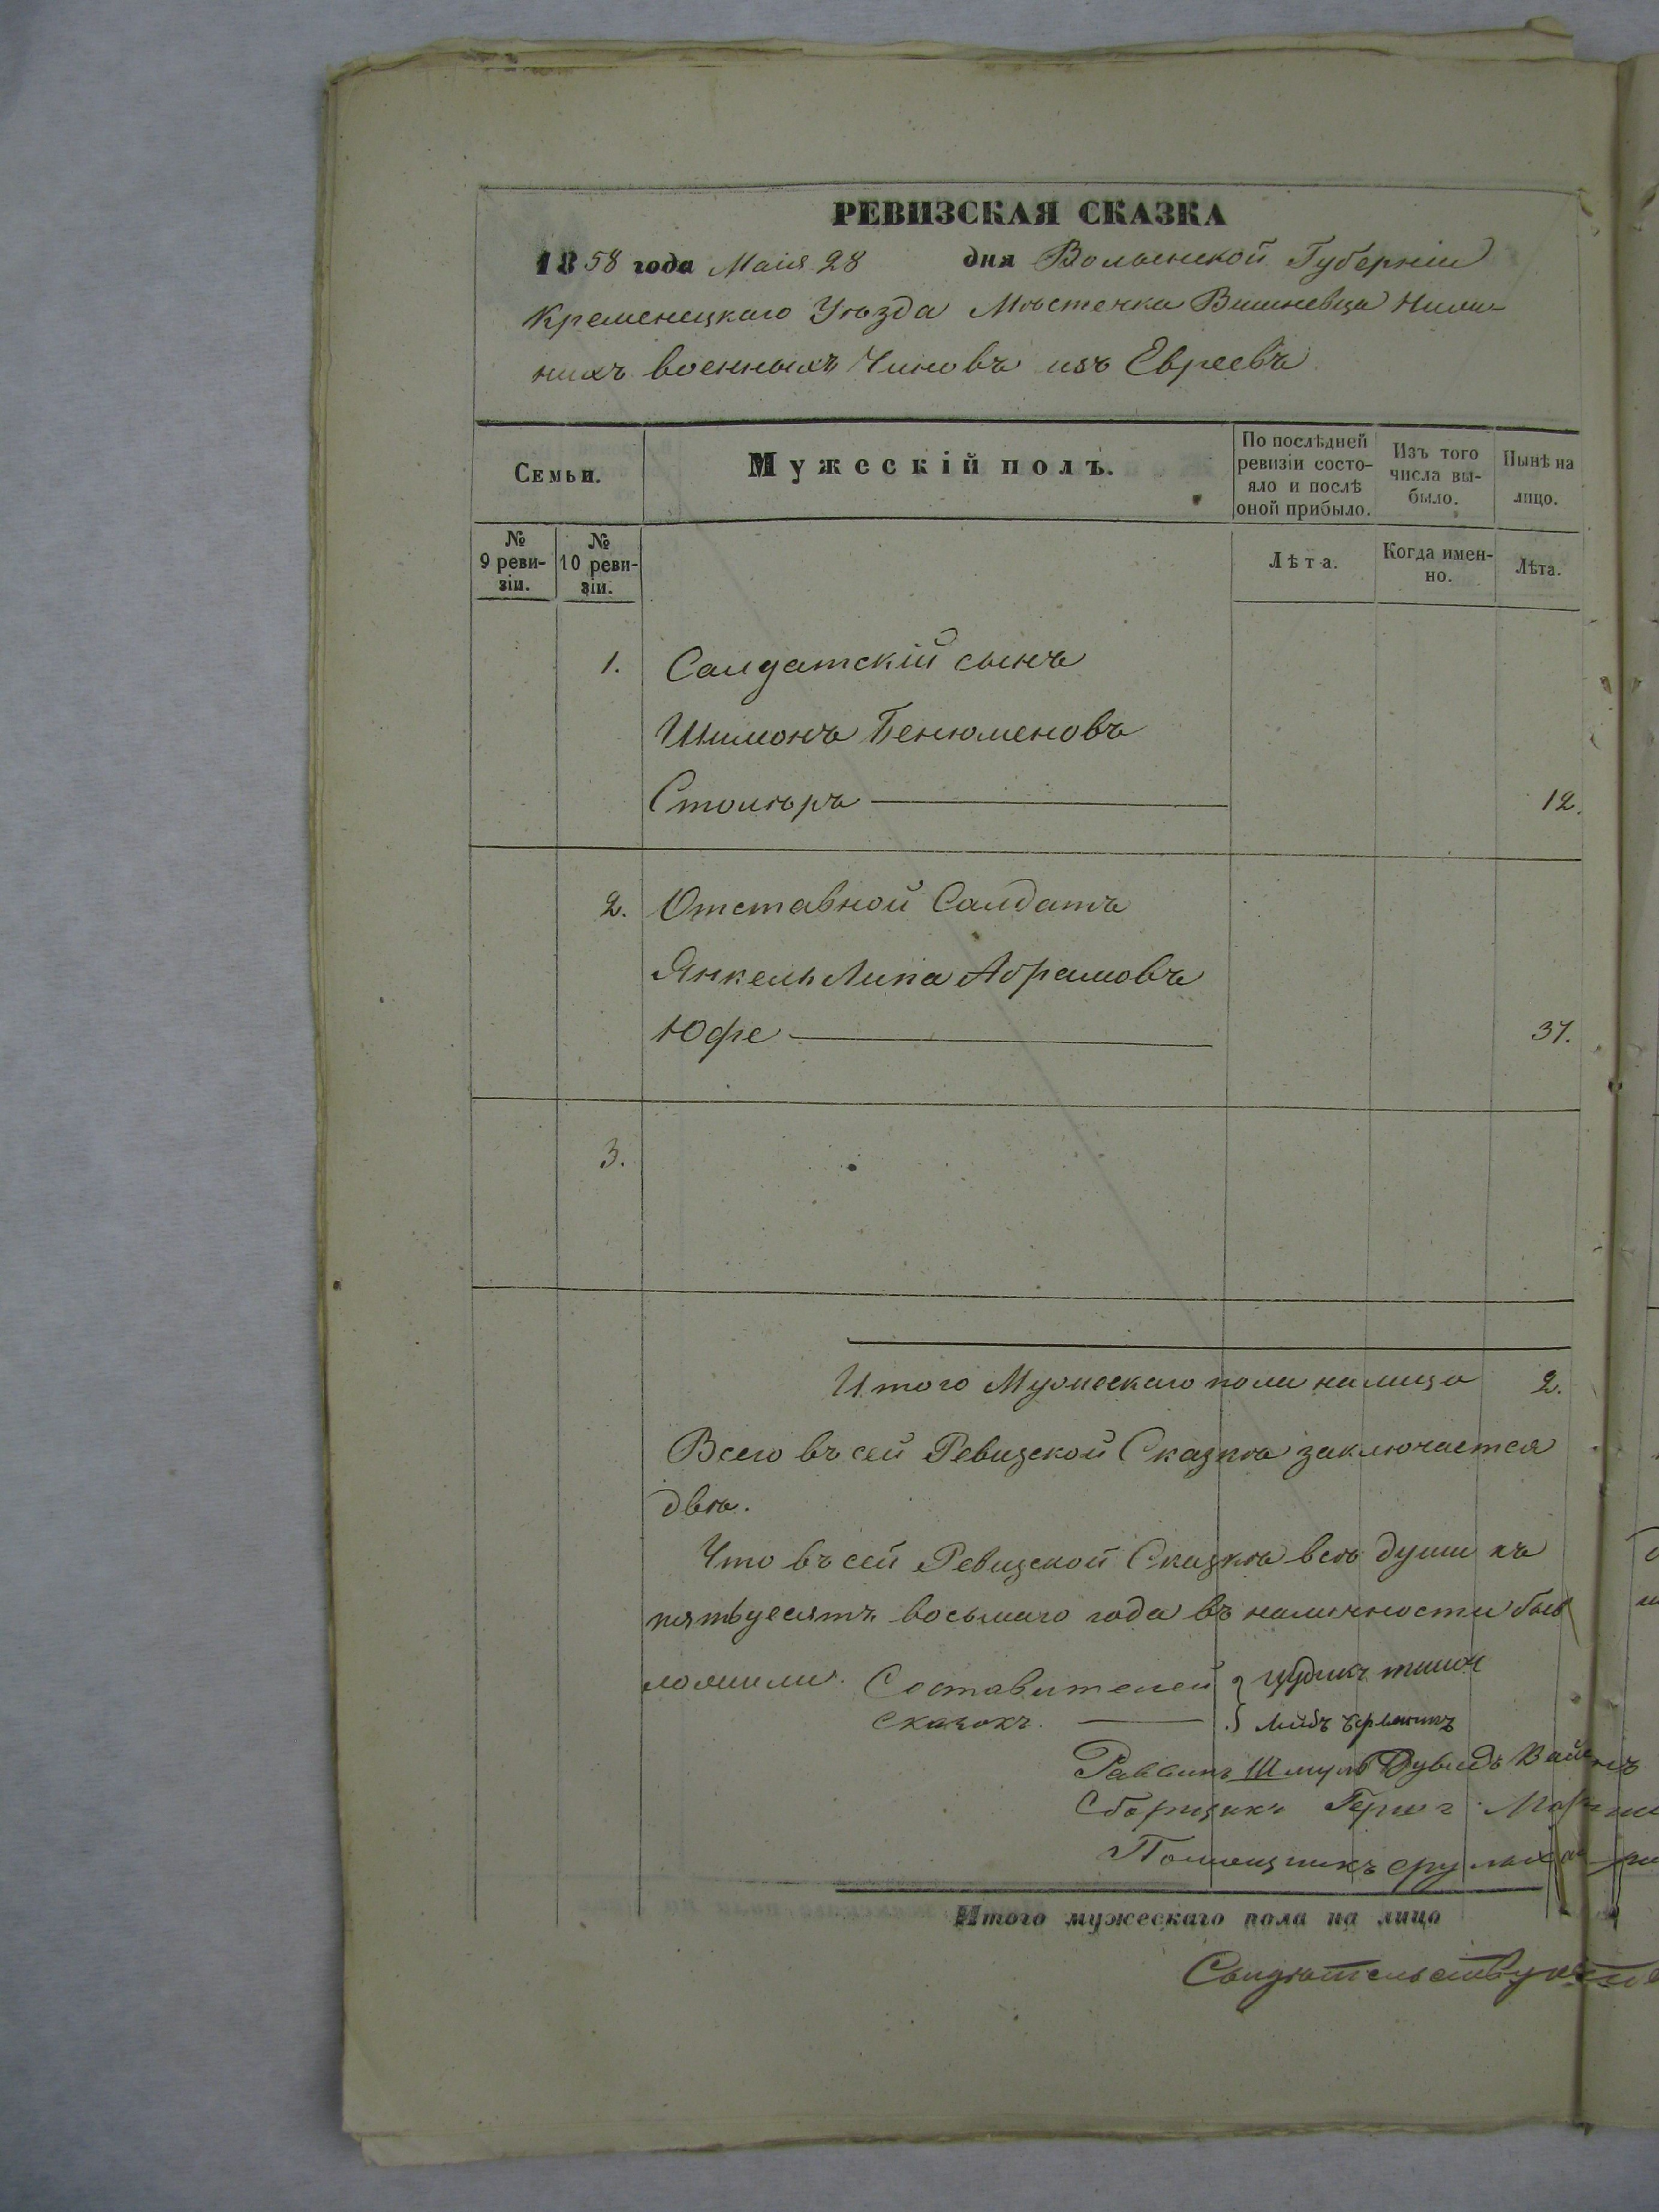 РЕВИЗСКАЯ СКАЗКА
1858 года Маія 28 дня Волынской Губерніи
Кременецкаго Уѣзда Мѣстечка Вишневца Нижи-
нихъ военныхъ Чиновъ изъ Евреевъ
Семьи.
Мужескій полъ.
По послѣдней ревизіи состо-
яло и послѣ
оной прибыло.
Изъ того
числа вы-
было.
Нынѣ на
лицо.
№
9 реви-
зіи.
№
10 реви-
зіи.
Лѣта.
Когда имен-
но.
Лѣта.
1. Салдатскій сынъ
Шимонъ Бенюменовъ
Столяръ 12.
2. Отставной Салдатъ
Янкель Липа Абрамовъ
Юфе 37.
3.
Итого Мужескаго пола налицо 2.
Всего въ сей Ревизской Сказкѣ заключается
двѣ.
Что въ сей Ревизской Сказкѣ всѣ души къ
пятьдесятъ восьмаго года въ наличности бы
Составителей
Сказокъ. Лейбъ
Раввинъ Шмуль Дувидъ
Сборщикъ Гершъ
Помощникъ Сруль
Итого мужескаго пола на лицо